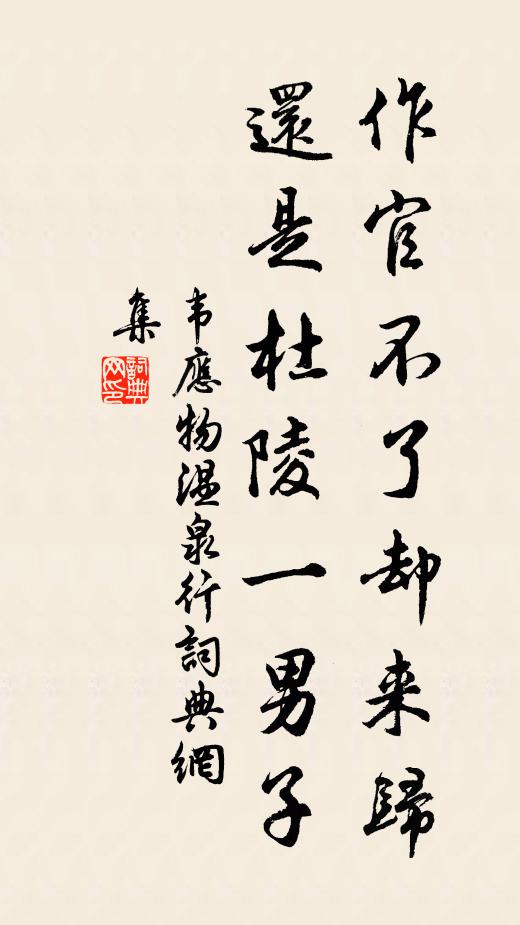 作官不了却来歸
還是杜陵一男子
韦應物温泉行詞典網
集
詞典
网印